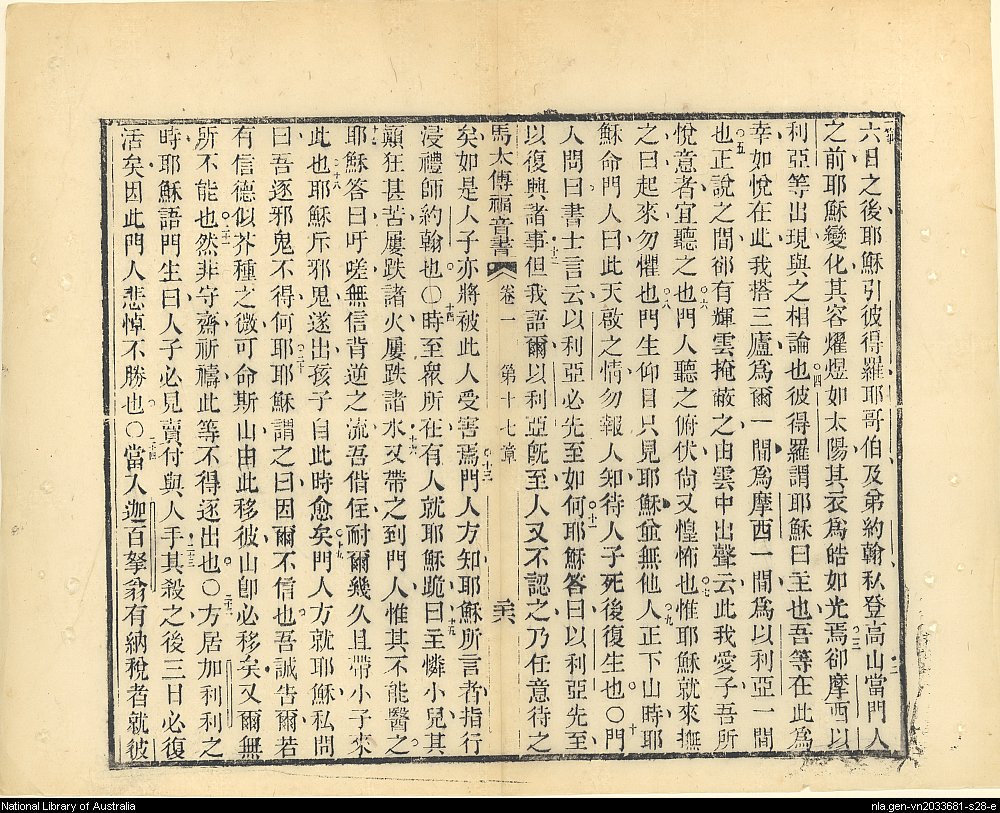 六日之後耶穌引彼得羅耶哥伯及弟約翰私登高山當門人
之前耶穌變化其容燿煜如太陽其衣為皓如光焉卻摩西以
利亞等出現與之相論也彼得羅謂耶穌曰主也吾等在此為
幸如悅在此我搭三廬為爾一間為摩西一間為以利亞一間
也正說之間卻有輝雲掩蔽之由雲中出聲云此我愛子吾所
悅意者宜聽之也門人聽之俯伏尚又惶怖也惟耶穌就來撫
之曰起來勿懼也門生仰目只見耶穌並無他人正下山時耶
穌命門人曰此天啟之情勿報人知待人子死後復生也〇門
人問曰書士言云以利亞必先至如何耶穌答曰以利亞先至
以復興諸事但我語爾以利亞既至人又不認之乃任意待之
馬太傳福音書 卷一 第十七章 二六
矣如是人子亦將被此人受害焉門人方知耶穌所言者指行
浸禮師約翰也〇時至眾所在有人就耶穌跪曰主憐小兒其
顛狂甚苦屢跌諸火屢跌諸水又帶之到門人惟其不能醫之
耶穌答曰吁嗟無信背逆之流吾偕在耐爾幾久且帶小子來
此也耶穌斥邪鬼遂出孩子自此時愈矣門人方就耶穌私問
曰吾逐邪鬼不得何耶耶穌謂之曰因爾不信也吾誠告爾若
有信德似芥種之微可命斯山由此移彼山即必移矣又爾無
所不能也然非守齋祈禱此等不得逐出也〇方居加利利之
時耶穌語門生曰人子必見賣付與人手其殺之後三日必復
活矣因此門人悲悼不勝也〇當入迦百拏翁有納稅者就彼
National Library of Australia
nla.gen-vn2033681-s28-e